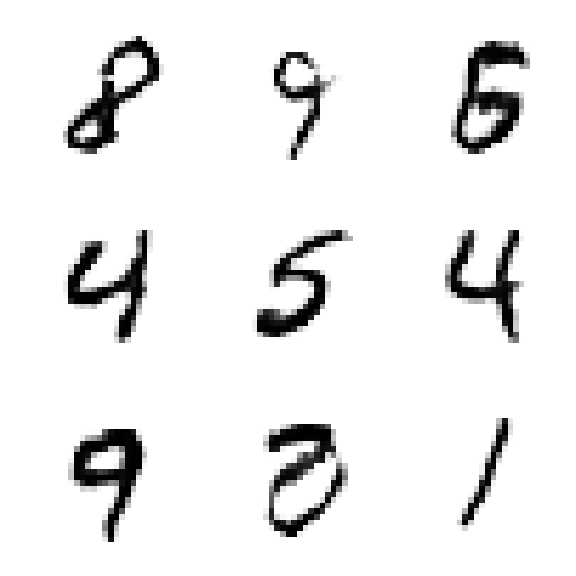 8 9 5
4 5 4
9 1